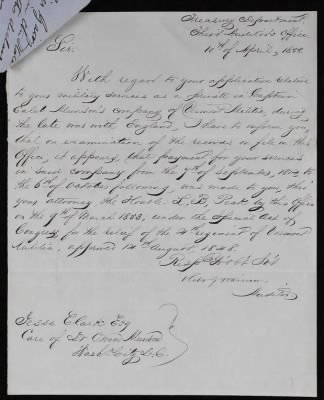 Treasury Department,
Third Auditor's Office
10th of April, 1855.
Sir
With regard to your application relative
to your military services as a private in Captain
Caleb Munson's company of Vermont Militia, during
the late war with England, I have to inform you,
that on examination of the records on file in this
Office, it appears, that payment for your services
in said company from the of September, 1812 to
the 6th of October following, was made to you, thro'
your attorney the Honble. Peck by this Office
on the 9th of March 1853, under the Special Act of
Congress for the relief of the 4th regiment of Vermont
Militia, approved 14th August, 1848.
Resply Yr Obt Svt
Auditor
Jesse Clark Esq
Care of Dr Orin Munson
Wash. City D.C.